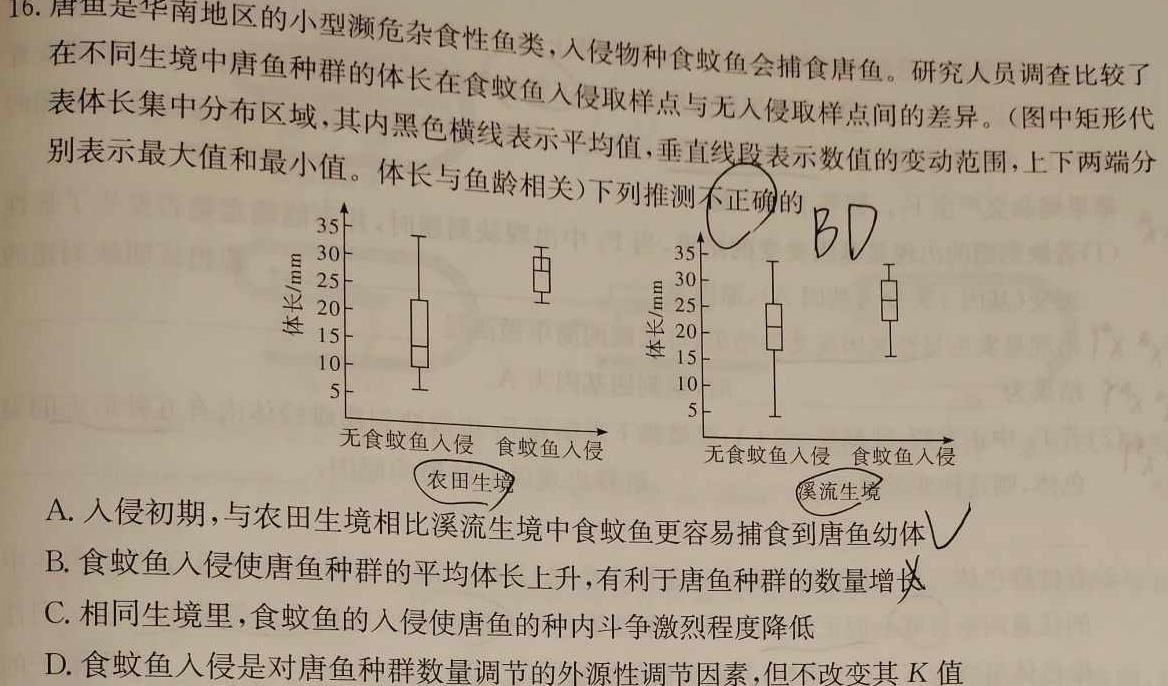 16. 唐鱼是华南地区的小型濒危杂食性鱼类,入侵物种食蚊鱼会捕食唐鱼。研究人员调查比较了
在不同生境中唐鱼种群的体长在食蚊鱼入侵取样点与无入侵取样点间的差异。(图中矩形代
表体长集中分布区域,其内黑色横线表示平均值,垂直线段表示数值的变动范围,上下两端分
别表示最大值和最小值。体长与鱼龄相关)下列推测不正确的
BD
体长/mm
35
30
25
20
15
10
5
无食蚊鱼入侵 食蚊鱼入侵
农田生境
体长/mm
35
30
25
20
15
10
5
无食蚊鱼入侵 食蚊鱼入侵
溪流生境
A. 入侵初期,与农田生境相比溪流生境中食蚊鱼更容易捕食到唐鱼幼体
B. 食蚊鱼入侵使唐鱼种群的平均体长上升,有利于唐鱼种群的数量增长
C. 相同生境里,食蚊鱼的入侵使唐鱼的种内斗争激烈程度降低
D. 食蚊鱼入侵是对唐鱼种群数量调节的外源性调节因素,但不改变其 K 值